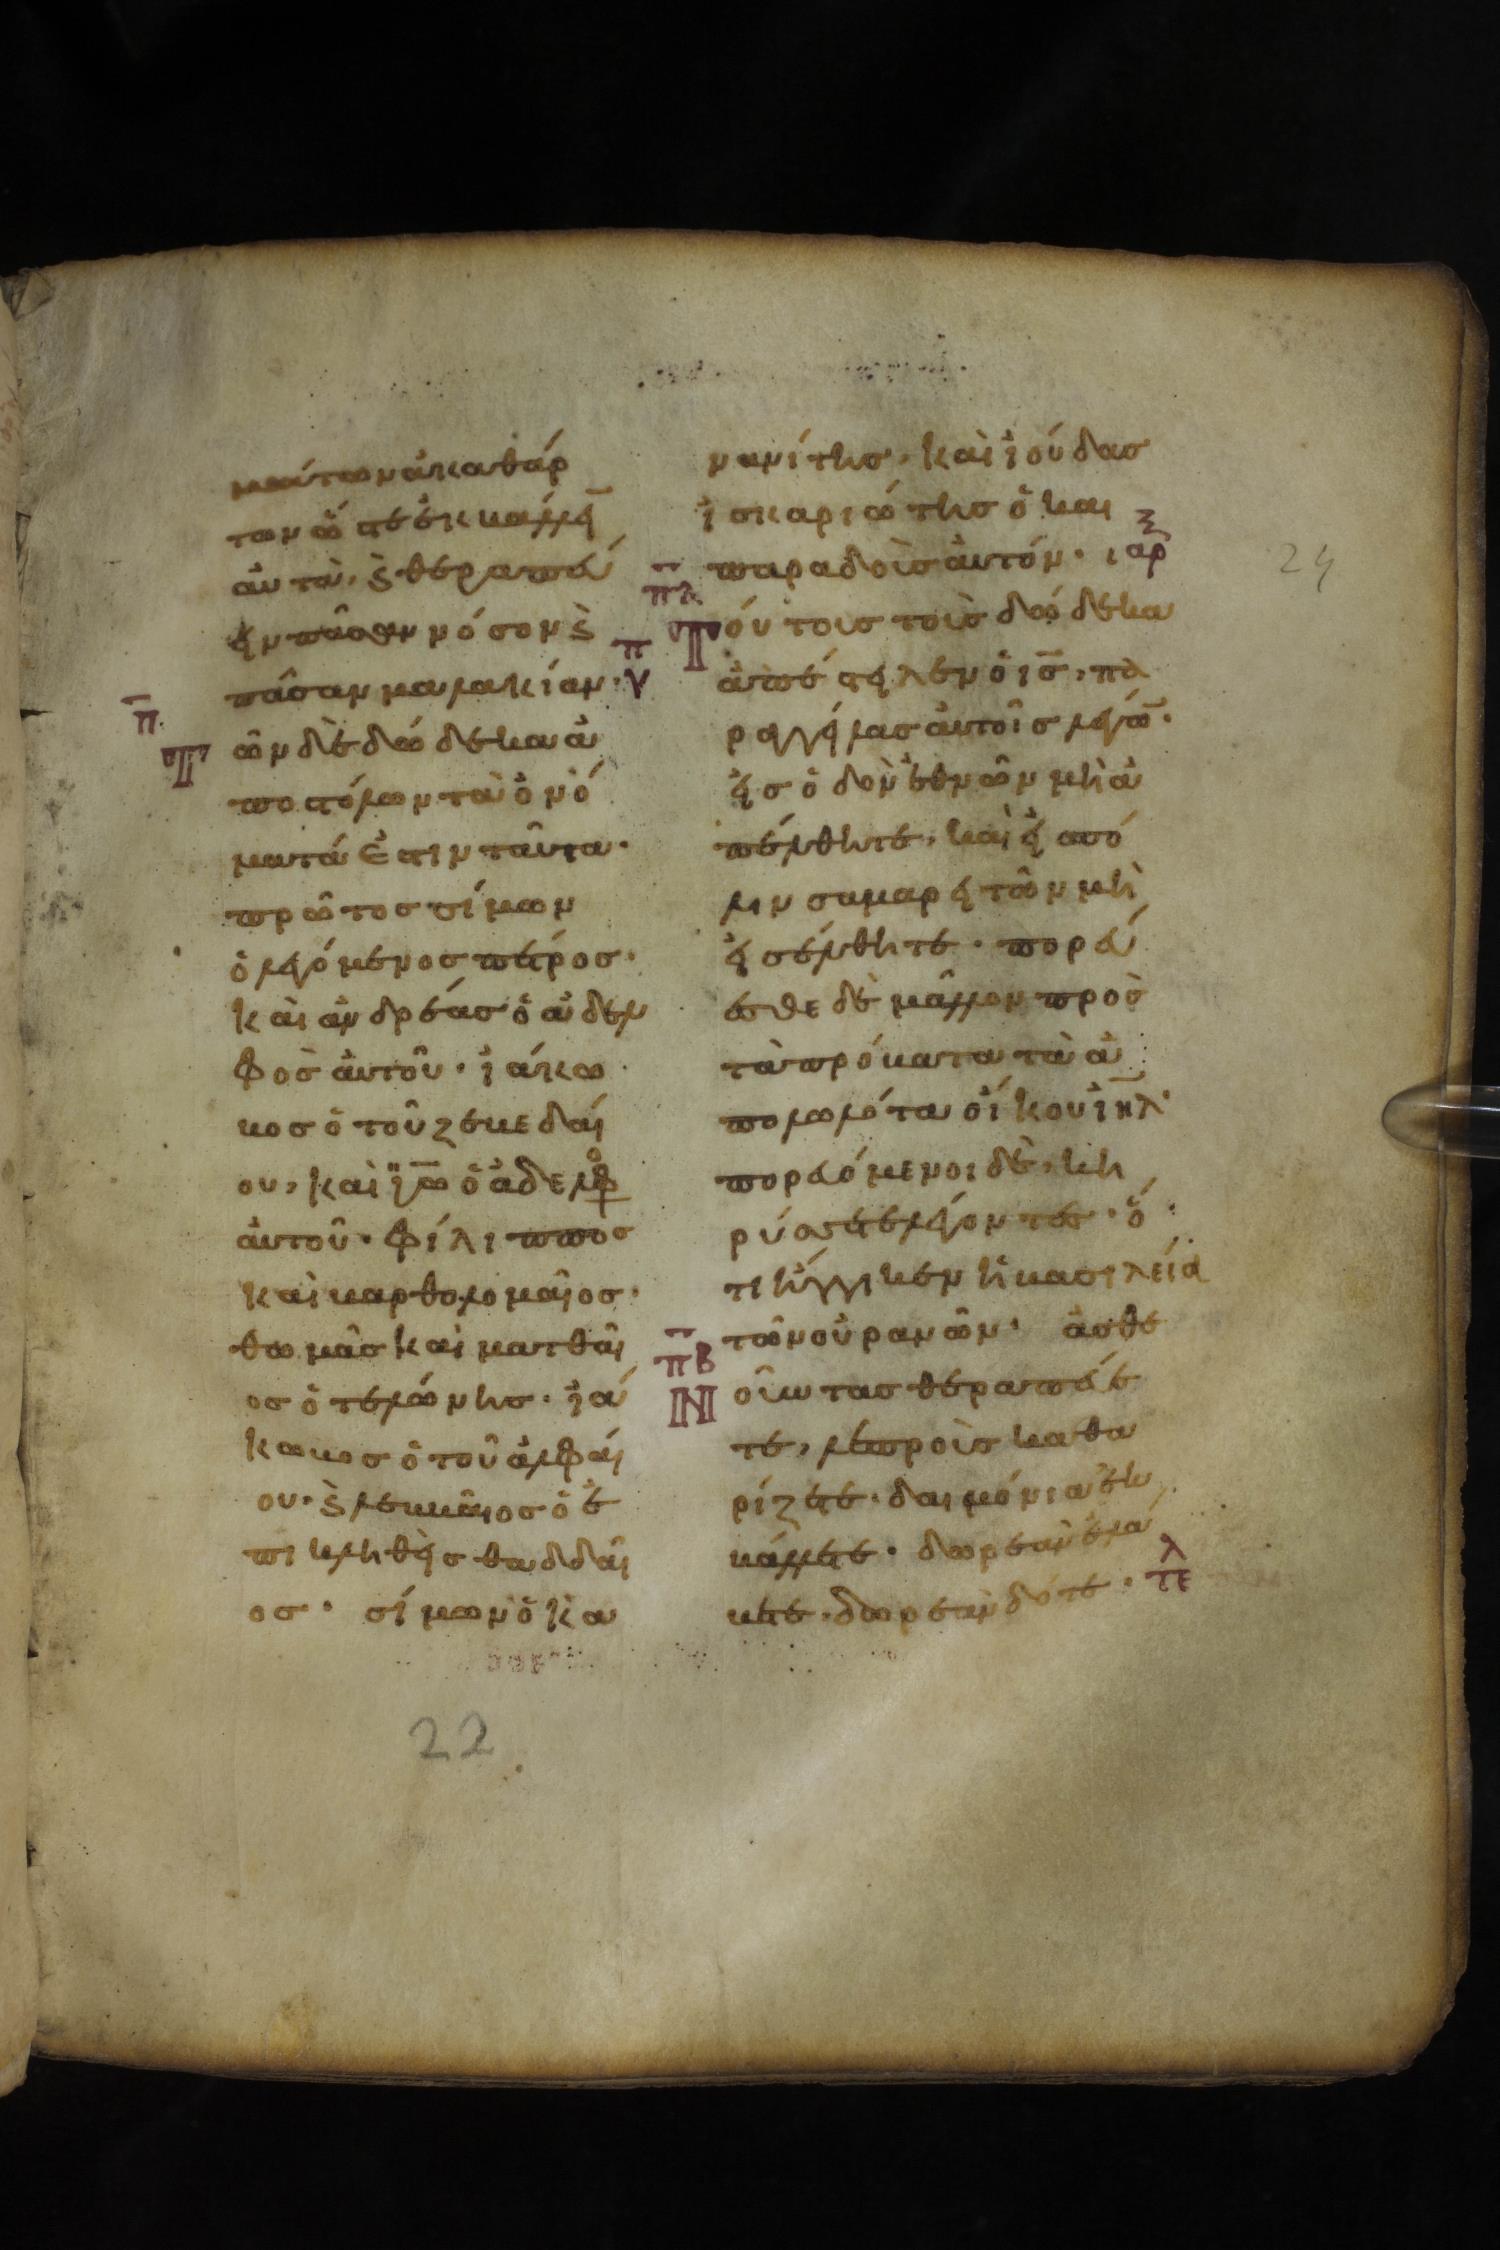 μάτων ἀκαθάρ
των ὥστε ἐκβάλλει
αὐτὰ, ϗ θεραπεύ
ειν πᾶσαν νόσον ϗ
πᾶσαν μαλακίαν·
Τῶν δὲ δώδεκα ἀ
ποστόλων τὰ ὀνό
ματά ἐστιν ταῦτα·
πρῶτος σίμων
ὁ λεγόμενος πέτρος·
καὶ ἀνδρέας ὁ ἀδελ
φὸς αὐτοῦ· ἰάκω
βος ὁ τοῦ ζεβεδαί
ου, καὶ ϊω̅ ὁ ἀδελφο
αὐτοῦ· φίλιππος
καὶ βαρθολομαῖος·
θωμᾶς καὶ ματθαῖ
ος ὁ τελώνης· ἰά
κωβος ὁ τοῦ ἀλφαί
ου· ϗ λεββαῖος ὁ ἐ
πικληθεὶς θαδδαῖ
ος· σίμων ὁ κα
νανίτης, καὶ ἰούδας
ἰσκαριώτης ὁ καὶ
παραδοὺς αὐτόν·
Τούτους τοὺς δώδεκα
ἀπέστειλεν ὁ ις̅, πα
ραγγείλας αὐτοῖς λέγω̅·
εἰς ὁδὸν ἐθνῶν μὴ ἀ
πέλθητε, καὶ εἰς πό
λιν σαμαρειτῶν μὴ
εἰσέλθητε· πορεύ
εσθε δὲ μᾶλλον πρὸς
τὰ πρόβατα τὰ ἀ
πολωλότα οἴκου ἰη̅λ·
πορευόμενοι δὲ, κη
ρύσσετε λέγοντες· ὅ
τι ἤγγικεν ἡ βασιλεία
τῶν οὐρανῶν· ἀσθε
Νοῦντας θεραπεύε
τε, λεπροὺς καθα
ρίζετε· δαιμόνια ἐκ
βάλλετε· δωρεὰν ἐλά
βετε· δωρεὰν δότε·
24
22